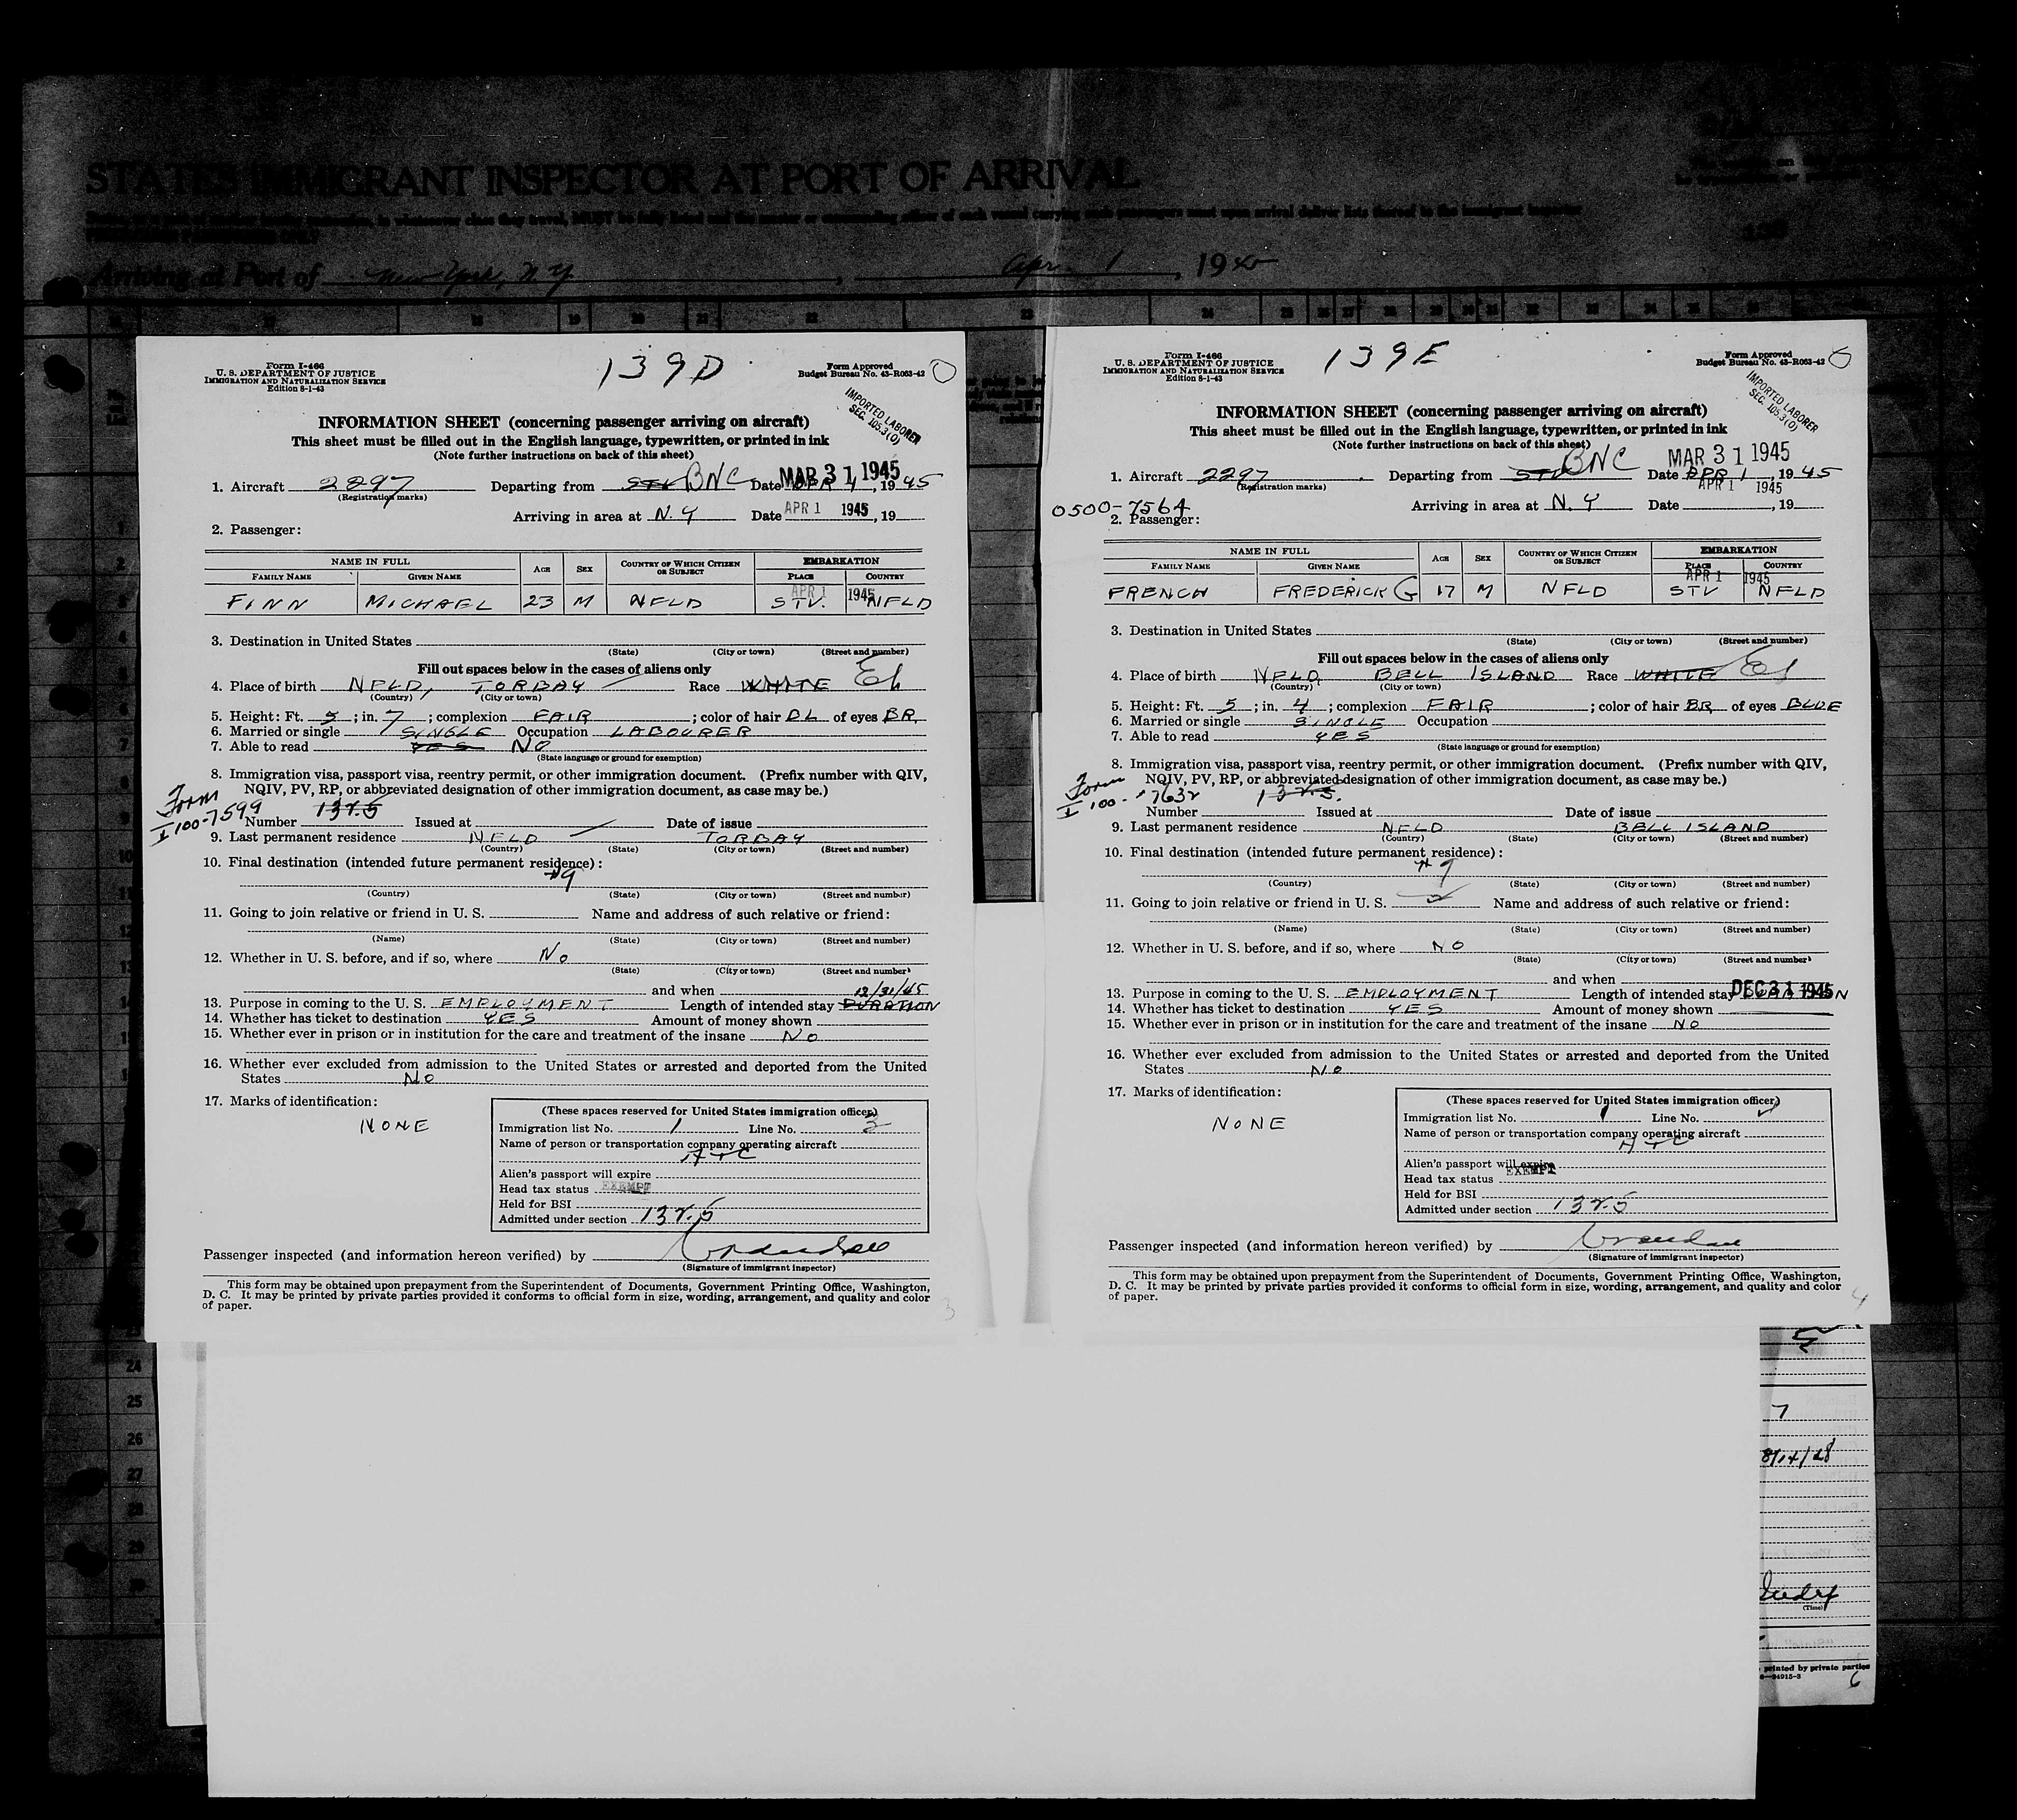 STATES IMMIGRANT INSPECTOR AT PORT OF ARRIVAL
Arriving at Port of New York, N. Y. , Apr. 1 , 19
Form I-466
U. S. DEPARTMENT OF JUSTICE
IMMIGRATION AND NATURALIZATION SERVICE
Edition 8-1-43
139D
Form Approved
Budget Bureau No. 43-R063-42
IMPORTED LABORER
SEC. 105.3(O)
INFORMATION SHEET (concerning passenger arriving on aircraft)
This sheet must be filled out in the English language, typewritten, or printed in ink
(Note further instructions on back of this sheet)
MAR 31 1945
1. Aircraft 2297 Departing from STV BNC Date APR 1, 1945
(Registration marks)
Arriving in area at N. Y Date APR 1 1945, 19
2. Passenger:
NAME IN FULL AGE SEX COUNTRY OF WHICH CITIZEN OR SUBJECT EMBARKATION
FAMILY NAME GIVEN NAME PLACE COUNTRY
APR 1 1945
FINN MICHAEL 23 M NFLD STV. NFLD
3. Destination in United States
(State) (City or town) (Street and number)
Fill out spaces below in the cases of aliens only
4. Place of birth NFLD, TORBAY Race WHITE
(Country) (City or town)
5. Height: Ft. 5 ; in. 7 ; complexion FAIR ; color of hair BL of eyes BR.
6. Married or single SINGLE Occupation LABOURER
7. Able to read YES NO
(State language or ground for exemption)
8. Immigration visa, passport visa, reentry permit, or other immigration document. (Prefix number with QIV,
NQIV, PV, RP, or abbreviated designation of other immigration document, as case may be.)
Form
I 100-7599
Number 132.5 Issued at Date of issue
9. Last permanent residence NFLD TORBAY
(Country) (State) (City or town) (Street and number)
10. Final destination (intended future permanent residence):
(Country) (State) (City or town) (Street and number)
11. Going to join relative or friend in U. S. Name and address of such relative or friend:
(Name) (State) (City or town) (Street and number)
12. Whether in U. S. before, and if so, where No
(State) (City or town) (Street and number)
and when
12/31/45
13. Purpose in coming to the U. S. EMPLOYMENT Length of intended stay DURATION
14. Whether has ticket to destination YES Amount of money shown
15. Whether ever in prison or in institution for the care and treatment of the insane No
16. Whether ever excluded from admission to the United States or arrested and deported from the United
States No
17. Marks of identification:
NONE
(These spaces reserved for United States immigration officer)
Immigration list No. 1 Line No. 3
Name of person or transportation company operating aircraft
ATC
Alien's passport will expire
Head tax status EXEMPT
Held for BSI
Admitted under section 132.5
Passenger inspected (and information hereon verified) by
(Signature of immigrant inspector)
This form may be obtained upon prepayment from the Superintendent of Documents, Government Printing Office, Washington,
D. C. It may be printed by private parties provided it conforms to official form in size, wording, arrangement, and quality and color
of paper.
3
Form I-466
U. S. DEPARTMENT OF JUSTICE
IMMIGRATION AND NATURALIZATION SERVICE
Edition 8-1-43
139E
Form Approved
Budget Bureau No. 43-R063-42
IMPORTED LABORER
SEC. 105.3(O)
INFORMATION SHEET (concerning passenger arriving on aircraft)
This sheet must be filled out in the English language, typewritten, or printed in ink
(Note further instructions on back of this sheet)
MAR 31 1945
1. Aircraft 2297 Departing from STV BNC Date APR 1, 1945
(Registration marks)
APR 1 1945
Arriving in area at N. Y Date , 19
0500-7564
2. Passenger:
NAME IN FULL AGE SEX COUNTRY OF WHICH CITIZEN OR SUBJECT EMBARKATION
FAMILY NAME GIVEN NAME PLACE COUNTRY
APR 1 1945
FRENCH FREDERICK G 17 M NFLD STV NFLD
3. Destination in United States
(State) (City or town) (Street and number)
Fill out spaces below in the cases of aliens only
4. Place of birth NFLD BELL ISLAND Race WHITE
(Country) (City or town)
5. Height: Ft. 5 ; in. 4 ; complexion FAIR ; color of hair BR of eyes BLUE
6. Married or single SINGLE Occupation
7. Able to read YES
(State language or ground for exemption)
8. Immigration visa, passport visa, reentry permit, or other immigration document. (Prefix number with QIV,
NQIV, PV, RP, or abbreviated designation of other immigration document, as case may be.)
Form
I 100-7632 132.5.
Number Issued at Date of issue
9. Last permanent residence NFLD BELL ISLAND
(Country) (State) (City or town) (Street and number)
10. Final destination (intended future permanent residence):
(Country) (State) (City or town) (Street and number)
11. Going to join relative or friend in U. S. Name and address of such relative or friend:
(Name) (State) (City or town) (Street and number)
12. Whether in U. S. before, and if so, where NO
(State) (City or town) (Street and number)
and when
DEC 31 1945
13. Purpose in coming to the U. S. EMPLOYMENT Length of intended stay DURATION
14. Whether has ticket to destination YES Amount of money shown
15. Whether ever in prison or in institution for the care and treatment of the insane NO
16. Whether ever excluded from admission to the United States or arrested and deported from the United
States No
17. Marks of identification:
NONE
(These spaces reserved for United States immigration officer)
Immigration list No. 1 Line No.
Name of person or transportation company operating aircraft
ATC
Alien's passport will expire
EXEMPT
Head tax status
Held for BSI
Admitted under section 132.5
Passenger inspected (and information hereon verified) by
(Signature of immigrant inspector)
This form may be obtained upon prepayment from the Superintendent of Documents, Government Printing Office, Washington,
D. C. It may be printed by private parties provided it conforms to official form in size, wording, arrangement, and quality and color
of paper.
4
24
25
26
27
28
29
30
7
(Time)
printed by private parties
6